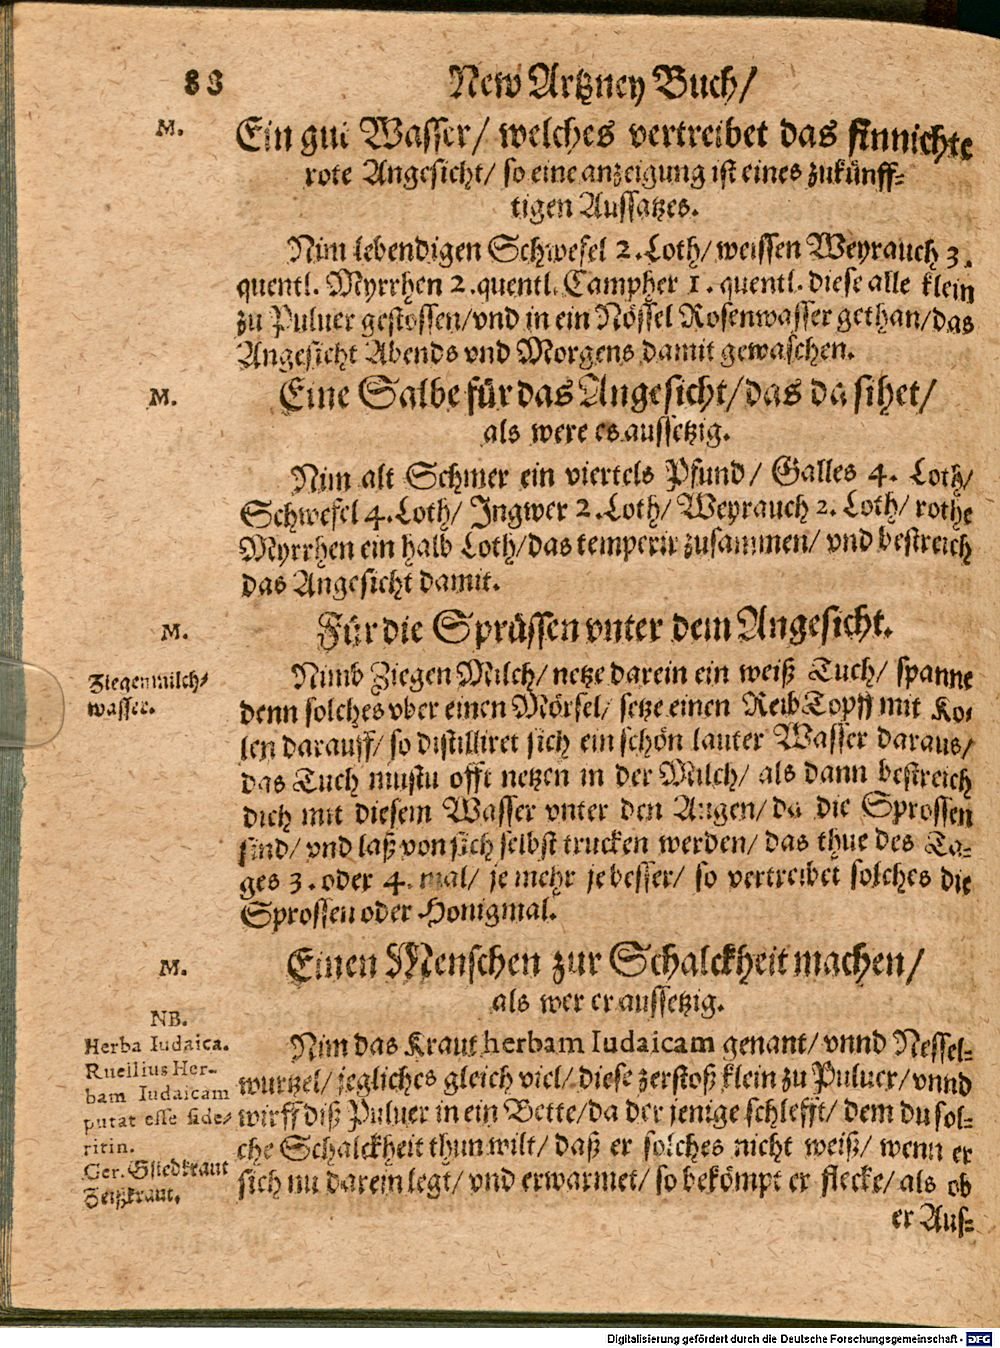 88
New Artzney Buch/
M.
Ein gut Wasser/ welches vertreibet das finnichte
rote Angesicht/ so eine anzeigung ist eines zukünff-
tigen Aussatzes.
Nim lebendigen Schwefel 2. Loth/ weissen Weyrauch 3.
quentl. Myrrhen 2. quentl. Campher 1. quentl. diese alle klein
zu Puluer gestossen/ vnd in ein Nössel Rosenwasser gethan/ das
Angesicht Abends vnd Morgens damit gewaschen.
M.
Eine Salbe für das Angesicht/ das da sihet/
als were es aussetzig.
Nim alt Schmer ein viertels Pfund/ Galles 4. Loth/
Schwefel 4. Loth/ Ingwer 2. Loth/ Weyrauch 2. Loth/ rothe
Myrrhen ein halb Loth/ das temperir zusammen/ vnd bestreich
das Angesicht damit.
M.
Für die Sprüssen vnter dem Angesicht.
Ziegenmilch-
wasser.
Nimb Ziegen Milch/ netze darein ein weiß Tuch/ spanne
denn solches vber einen Mörsel/ setze einen Reib Topff mit Ko-
len darauff/ so distilliret sich ein schön lauter Wasser daraus/
das Tuch mustu offt netzen in der Milch/ als dann bestreich
dich mit diesem Wasser vnter den Augen/ da die Sprossen
sind/ vnd laß von sich selbst trucken werden/ das thue des Ta-
ges 3. oder 4. mal/ je mehr je besser/ so vertreibet solches die
Sprossen oder Honigmal.
M.
Einen Menschen zur Schalckheit machen/
als wer er aussetzig.
NB.
Herba Iudaica.
Ruellius Her-
bam Iudaicam
putat esse side-
ritin.
Ger. Gliedkraut
Zeißkraut.
Nim das Kraut herbam Iudaicam genant/ vnnd Nessel-
wurtzel/ jegliches gleich viel/ diese zerstoß klein zu Puluer/ vnnd
wirff diß Puluer in ein Bette/ da der jenige schlefft/ dem du sol-
che Schalckheit thun wilt/ daß er solches nicht weiß/ wenn er
sich nu darein legt/ vnd erwarmet/ so bekömpt er flecke/ als ob
er Aus-
Digitalisierung gefördert durch die Deutsche Forschungsgemeinschaft - DFG